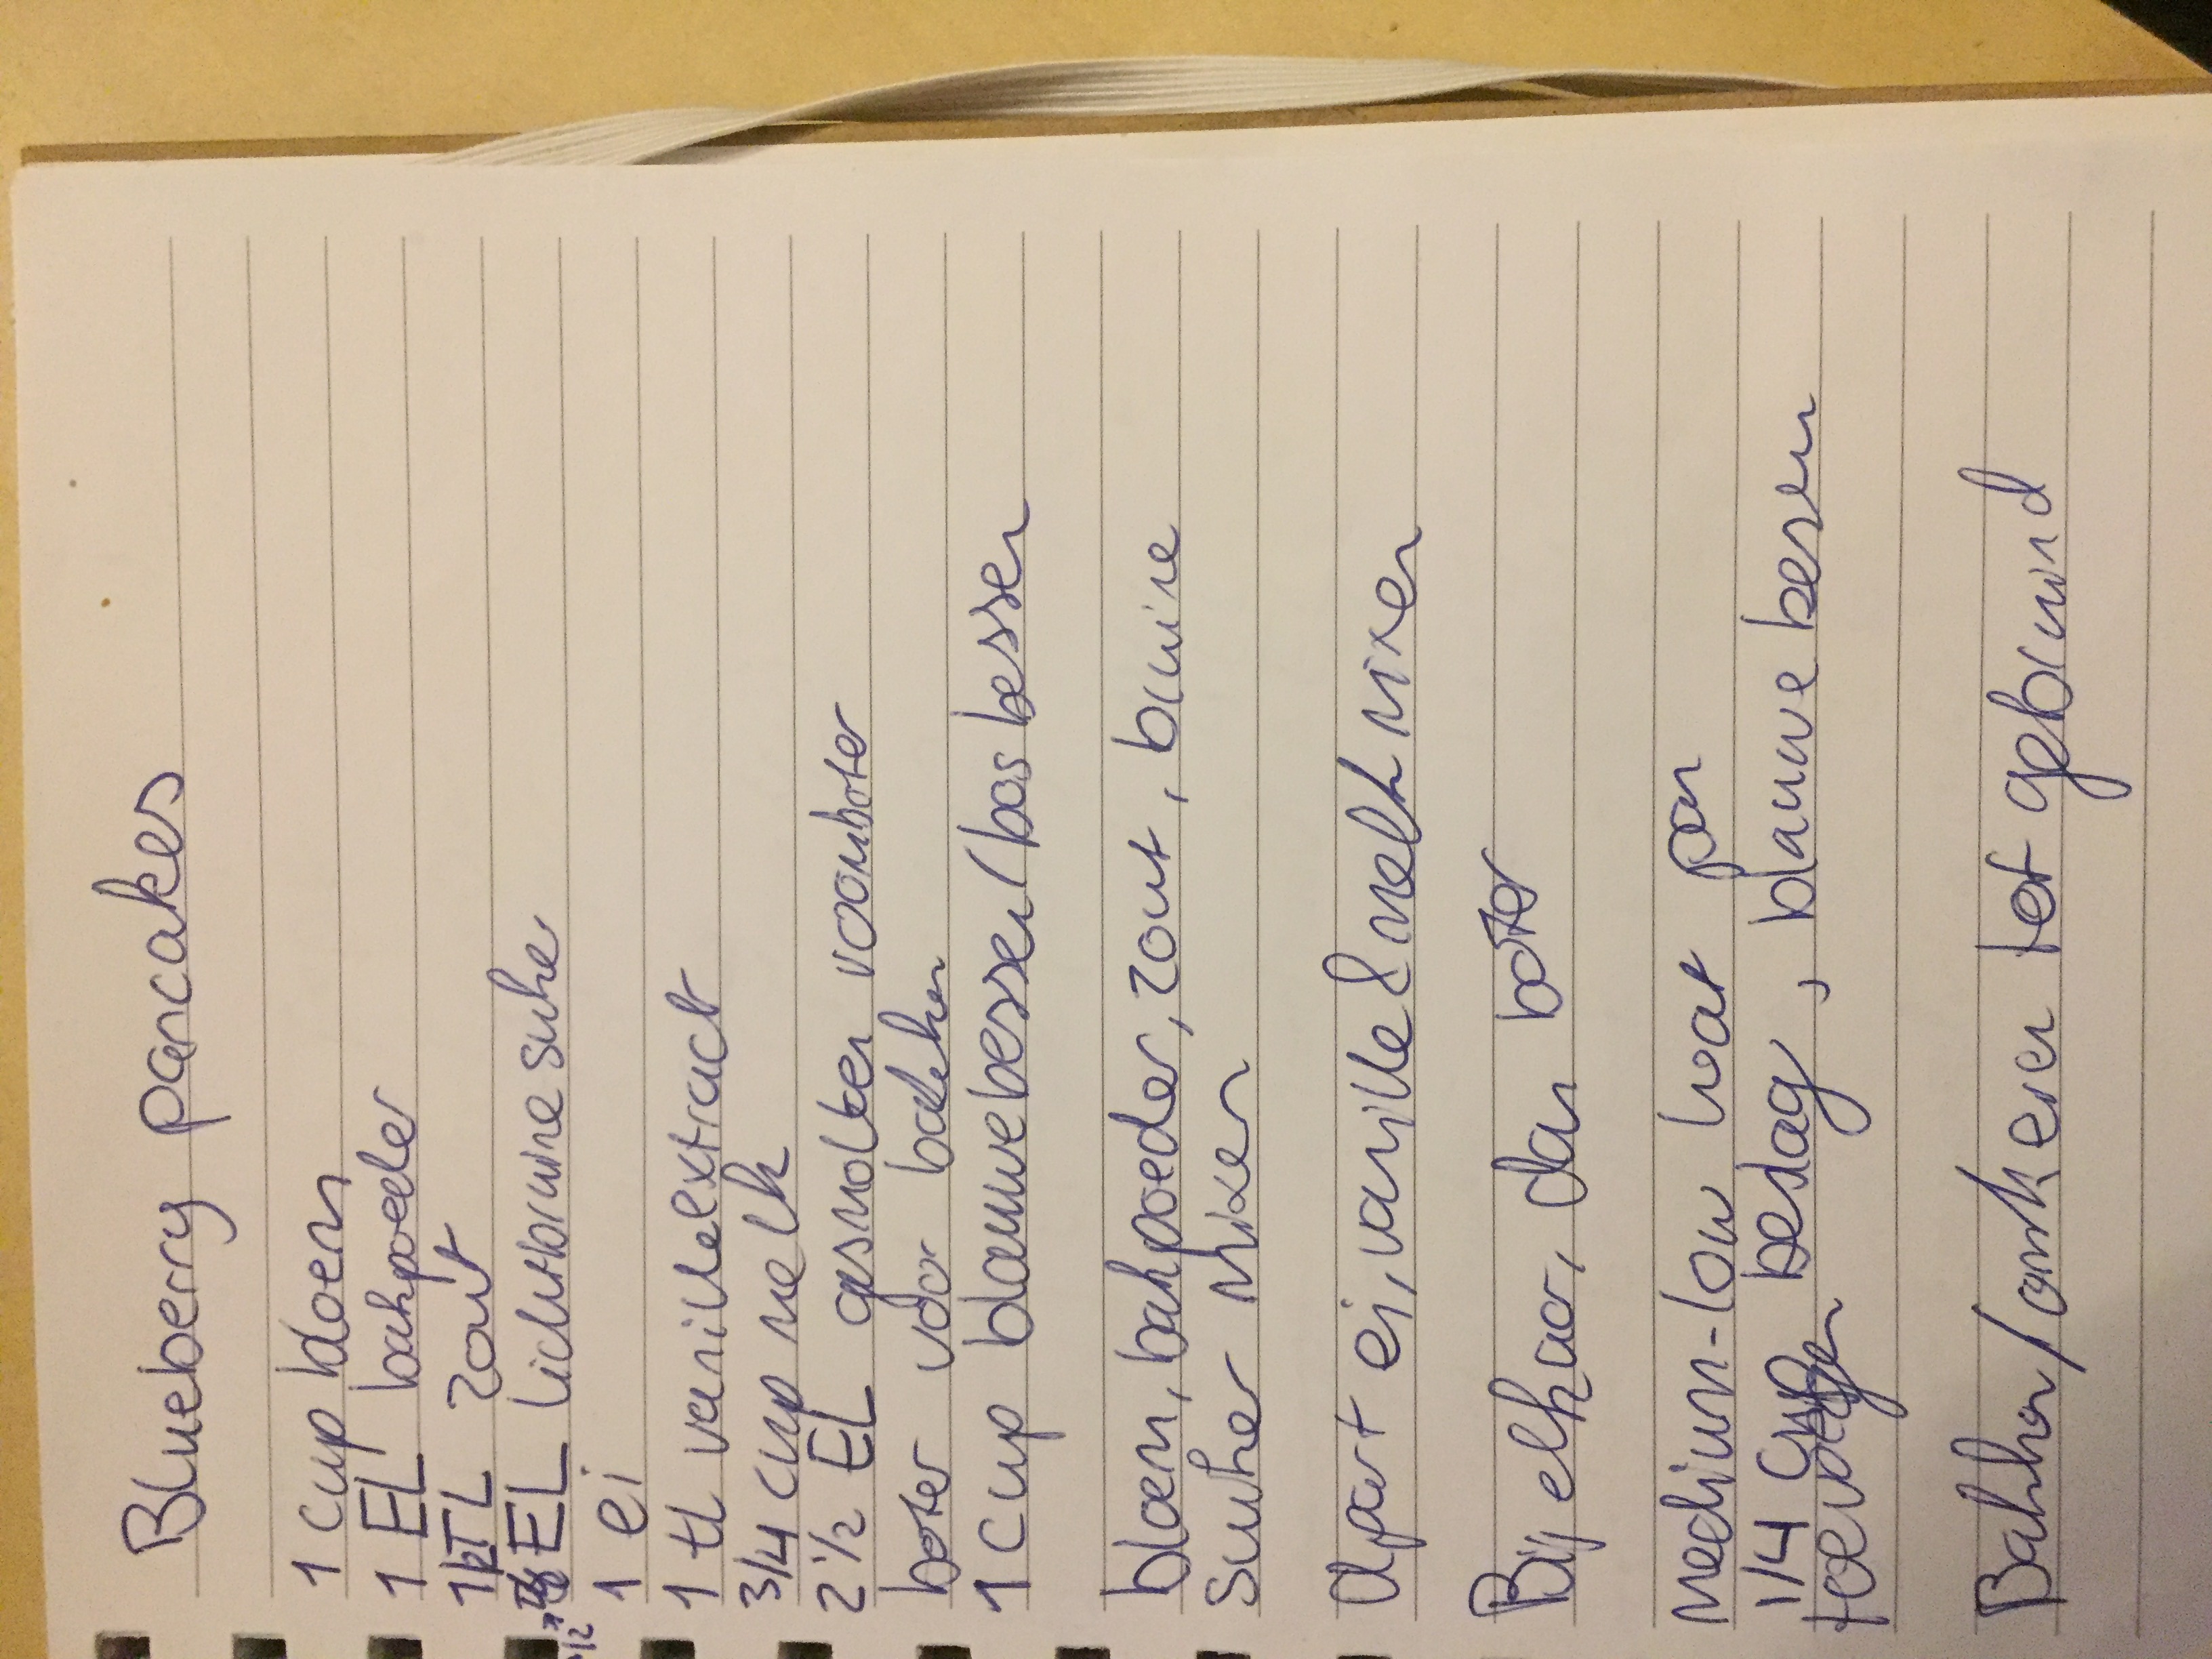 Blueberry pancakes
1 cup bloem
1 EL bakpoeder
1/2 TL zout
EL lichtbruine suiker
1/2
1 ei
1 tl vanilleextract
3/4 cup melk
2 1/2 EL gesmolten roomboter
boter voor bakken
1 cup blauwe bessen/bosbessen
bloem, bakpoeder, zout, bruine
suiker mixen
Apart ei, vanille & melk mixen
Bij elkaar, dan boter
Medium-low heat pan
1/4 cup beslag, blauwe bessen
toevoegen
Bakken/omkeren tot gebruind